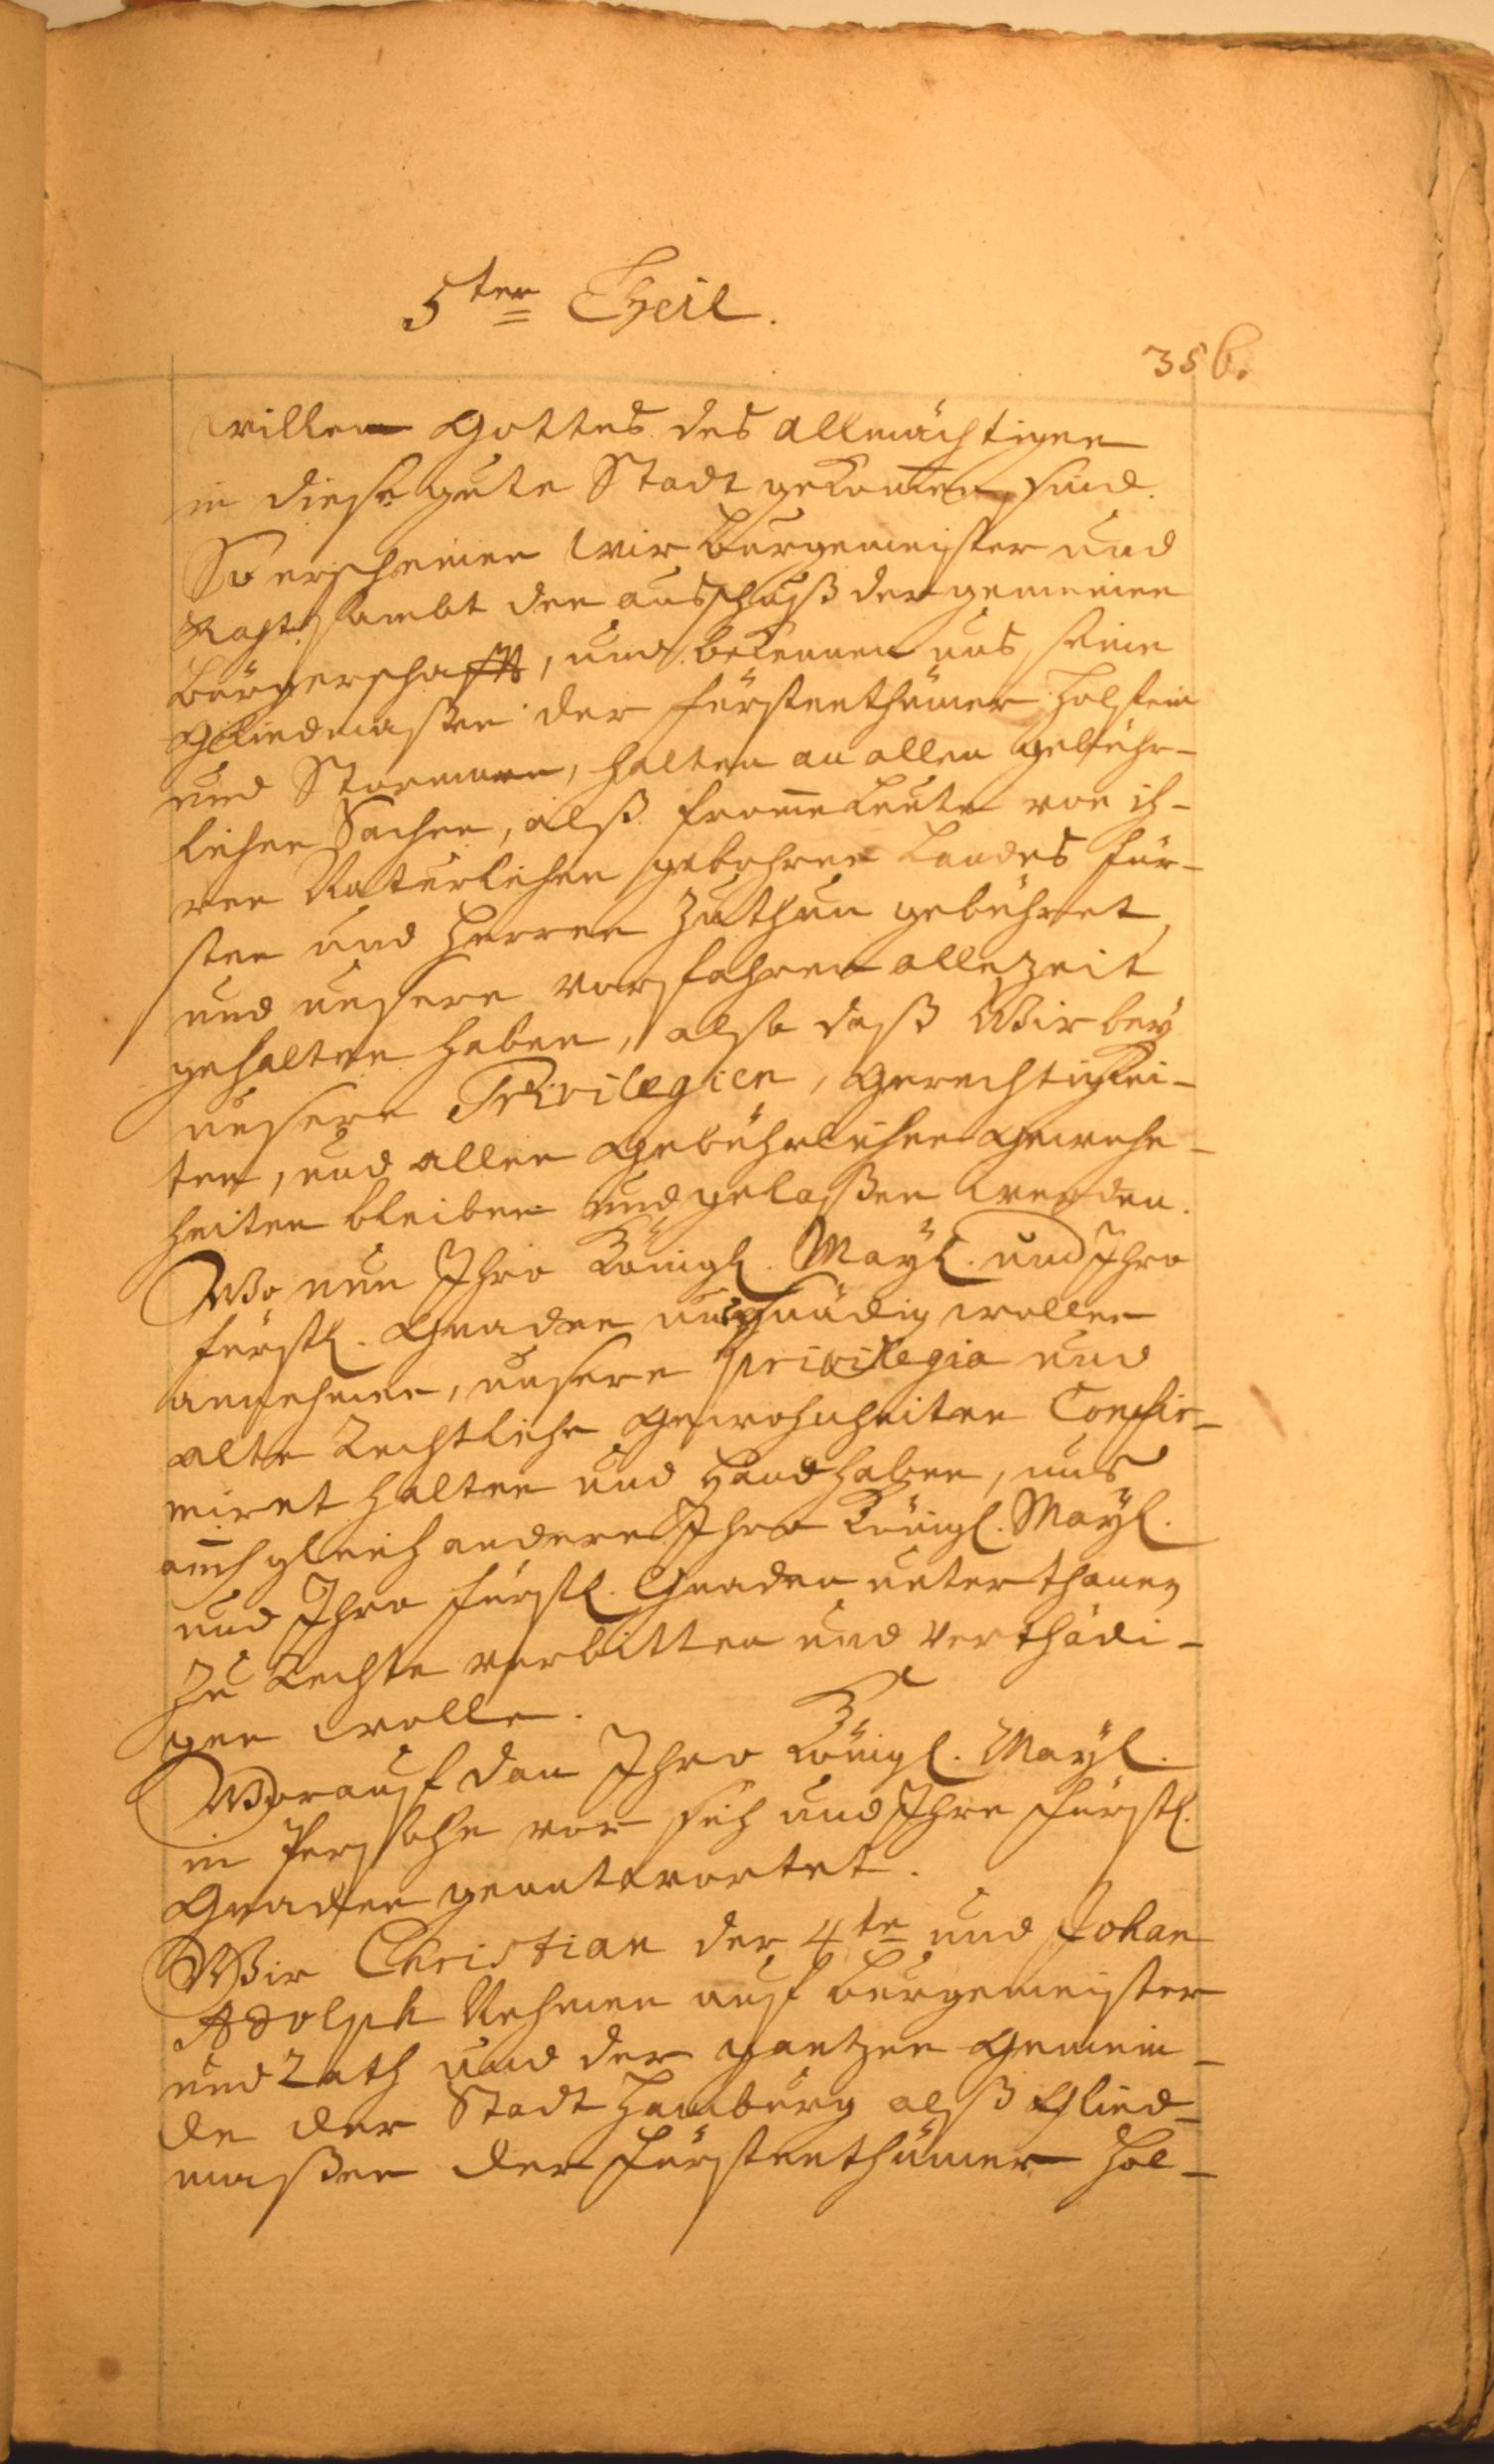 5ter Theil.
356.
willen Gottes des Allmächtigen
in diese gute Stadt gekom̄en sind.
So erscheinen wir Burgemeister und
Raht sambt den ausschuß der gemeinen
Bürgerschafft, und bekennen uns, seine
Gliedmaßen der Fürstenthümer Holstein
und Stormarn, halten an allen gebühr-
lichen Sachen, alß from̄e Leute von ih-
ren Natürlichen gebohren Landes Für-
sten und Herren zuthun gebühret,
und unsere vorfahren allezeit
gehalten haben, also daß Wir bey
unsern Privilegien, gerechtigkei-
ten, und allen gebührlichen gewohn-
heiten bleiben und gelaßen werden.
Wo nun Ihro Königl. Mayl. und Ihro
fürstl. Gnaden uns gnädig wollen
annehmen, unsere privilegia und
alte Rechtliche gewohnheiten Confir-
miret halten und handhaben, uns
auch gleich andere Ihro Königl. Mayl.
und Ihro fürstl. Gnaden unterthanen
zu Rechte verbitten und verthädi-
gen wolle.
Worauf dan Ihro Königl. Mayl.
in Persohn vor sich und Ihre fürstl.
Gnaden geantwortet.
Wir Christian der 4te und Johan
Adolph Nehmen auf Burgemeister
und Rath und der gantzen Gemein-
de der Stadt Hamburg alß Glied-
maßen der Fürstenthümer Hol-